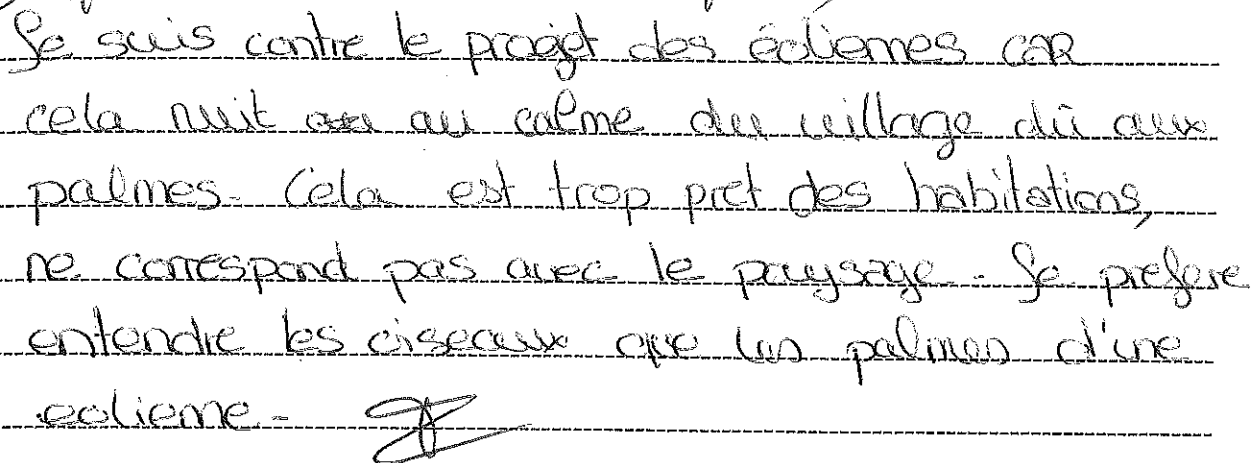 Je suis contre le projet des éoliennes CAR
cela nuit au calme du village dû aux
palmes. Cela est trop pret des habitations,
ne correspond pas avec le paysage. Je prefere
entendre les oiseaux que les palmes d'une
eolienne.